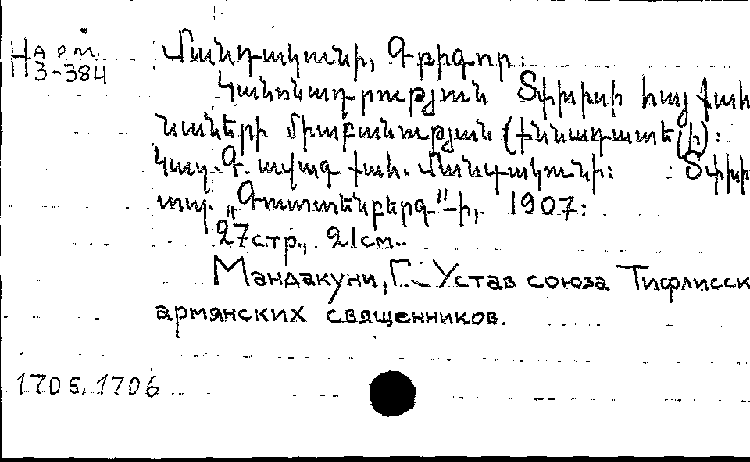 На р.м.
3-384
Մանդակունի, Գրիգոր
Կանոնադրություն Տփխիսի հայ քահ
նաների միաբանության (քննադատելի):
Կազ. Գ. ավագ քահ. Մանդակունի: Տփխի
տպ. „Գուտտենբերգ"-ի, 1907:
27стр., 21см.
Мандакуни, Г. Устав союза Тифлисск
армянских священников.
1705, 1706